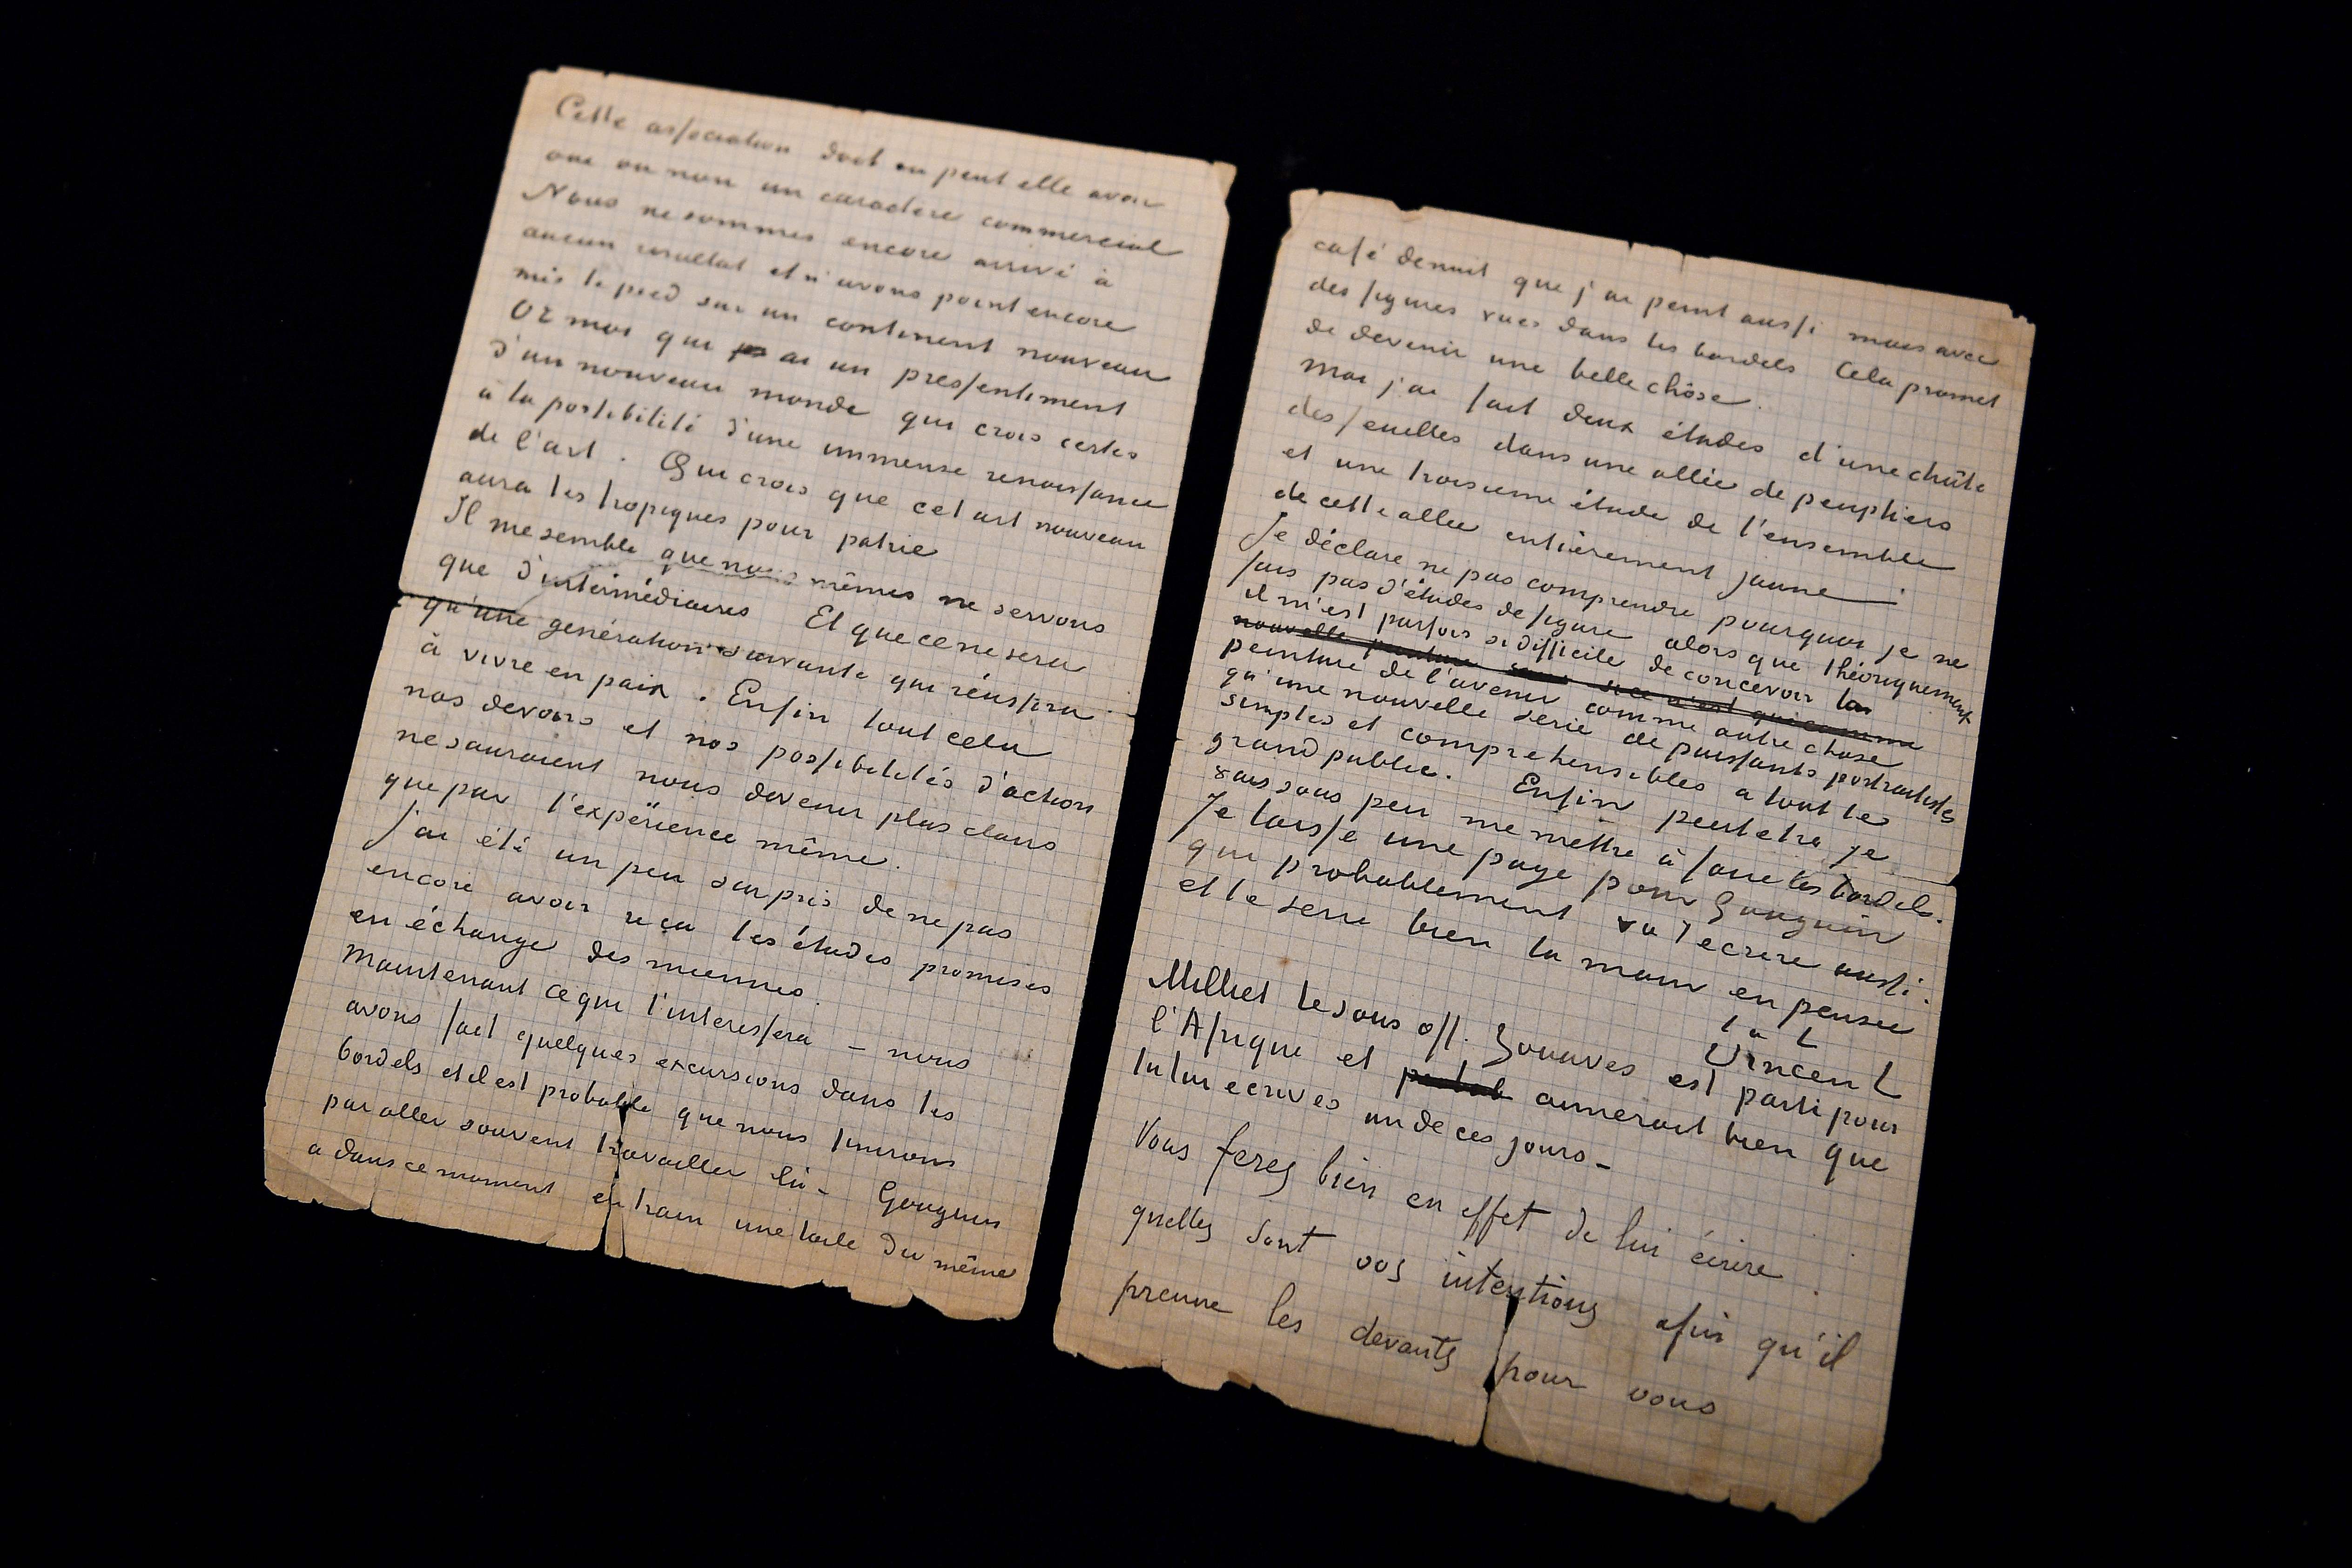 Cette association doit ou peut elle avoir
oui ou non un caractère commercial
Nous ne sommes encore arrivé à
aucun resultat et n'avons point encore
mis le pied sur un continent nouveau
Or moi qui ai un pressentiment
d'un nouveau monde qui crois certes
a la possibilité d'une immense renaissance
de l'art. Qui crois que cet art nouveau
aura les tropiques pour patrie
Il me semble que nous mêmes ne servons
que d'intermédiaires Et que ce ne sera
qu'une génération suivante qui réussira
à vivre en paix. Enfin tout cela
nos devoirs et nos possibilités d'action
ne sauraient nous devenir plus clairs
que par l'expérience même.
j'ai été un peu surpris de ne pas
encore avoir reçu les études promises
en échange des miennes.
Maintenant ce qui t'interessera – nous
avons fait quelques excursions dans les
bordels et il est probable que nous finirons
par aller souvent travailler là – Gauguin
a dans ce moment en train une toile du même
café de nuit que j'ai peint aussi mais avec
des figures vues dans les bordels Cela promet
de devenir une belle chôse.
Moi j'ai fait deux études d'une chûte
des feuilles dans une allée de peupliers
et une troisieme étude de l'ensemble
de cette allee entièrement jaune.
Je déclare ne pas comprendre pourquoi je ne
fais pas d'études de figure alors que théoriquement
il m'est parfois si difficile de concevoir la
nouvelle peinture sinon si ce n'est que comme
peinture de l'avenir comme autre chose
qu'une nouvelle serie de puissants portraitistes
simples et comprehensibles a tout le
grand public. Enfin peut etre je
vais sous peu me mettre à faire les bordels.
Je laisse une page pour Gauguin
qui probablement va t'ecrire aussi.
et te serre bien la main en pensée
t. à t.
Vincent
Milliet le sous off. Zouaves est parti pour
l'Afrique et aimerait bien que
tu lui ecrives un de ces jours –
Vous ferez bien en effet de lui écrire
quelles sont vos intentions afin qu'il
prenne les devants pour vous